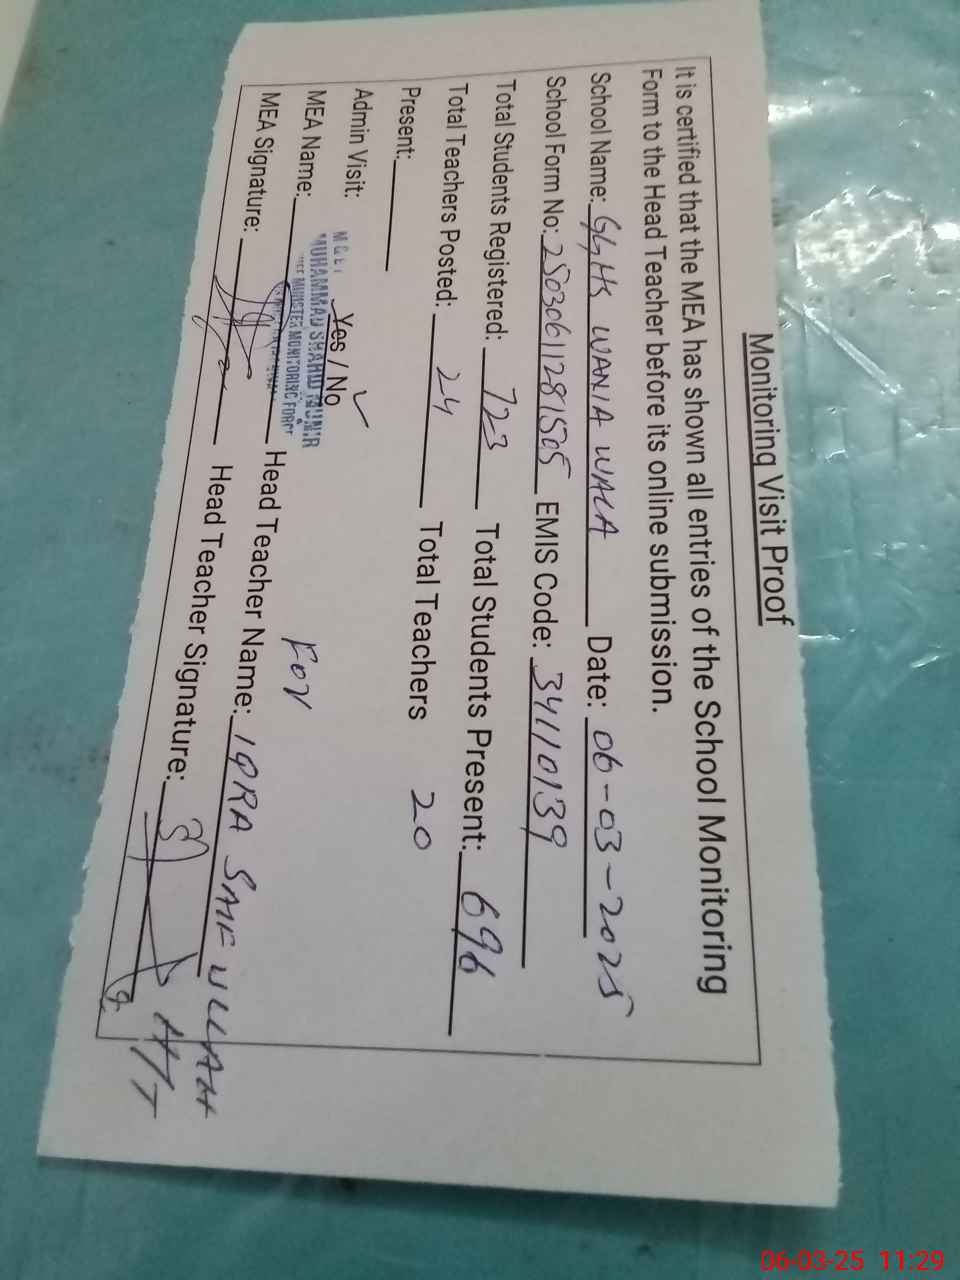 Monitoring Visit Proof
It is certified that the MEA has shown all entries of the School Monitoring
Form to the Head Teacher before its online submission.
School Name: GGHS WANIA WALA Date: 06-03-2025
School Form No: 25030611281505 EMIS Code: 34110139
Total Students Registered: 723 Total Students Present: 696
Total Teachers Posted: 24 Total Teachers 20
Present:
Admin Visit: Yes / No ✓
MUHAMMAD SHAHID MUNIR
MINISTER MONITORING FORCE
For
MEA Name: Head Teacher Name: IQRA SAIF ULLAH
MEA Signature: Head Teacher Signature:
06-03-25 11:29